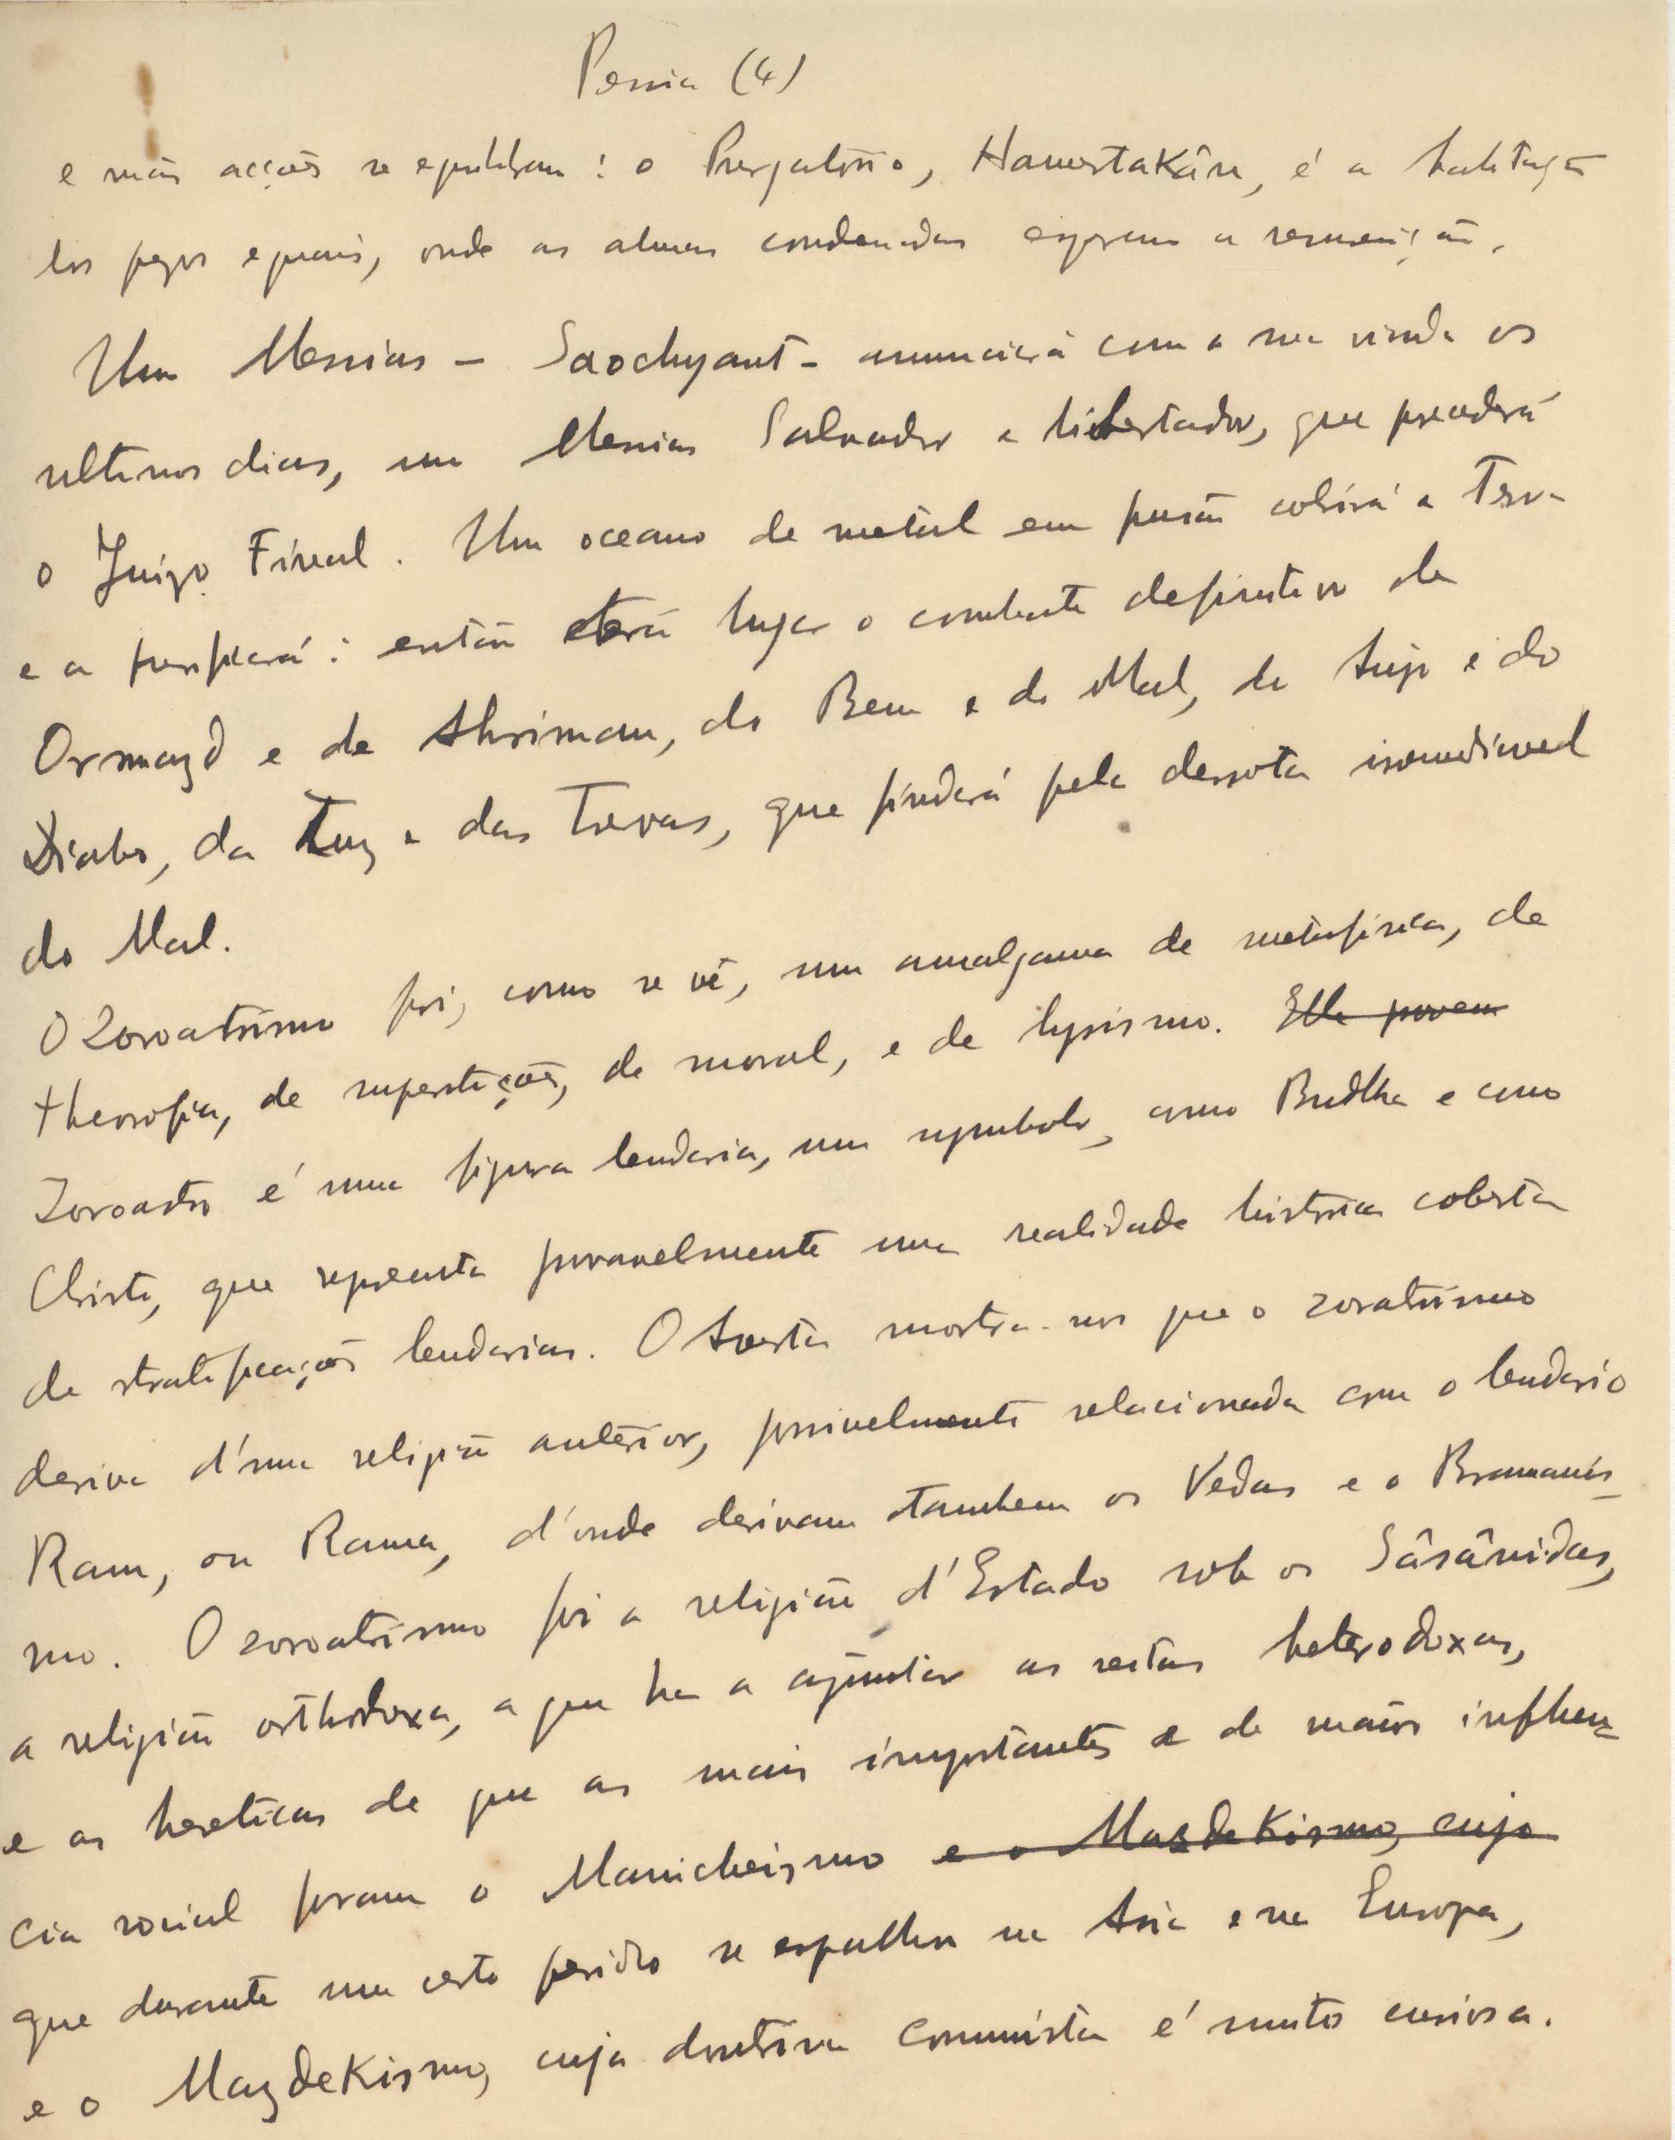 Persia (4)
e más acções se equilibram : o Purgatorio, Hamestakân, é a habitação
dos pezos eguais, onde as almas condenadas esperam a remissão.
Um Messias – Saochyant – annunciará com a sua vinda os
ultimos dias, um Messias Salvador e libertador, que precederá
o Juizo Final. Um oceano de metal em fusão cobrirá a Terra
e a purificará : então terá lugar o combate definitivo de
Ormazd e de Ahriman, do Bem e do Mal, do Anjo e do
Diabo, da Luz e das Trevas, que findará pela derrota irremediavel
do Mal.
O Zoroatrismo foi, como se vê, um amalgama de metafisica, de
theosofia, de superstições, de moral, e de lyrismo. Elle provem
Zoroastro é uma figura lendaria, um symbolo, como Budha e como
Christo, que representa provavelmente uma realidade historica coberta
de stratificações lendarias. O Avesta mostra-nos que o zoratrismo
deriva d'uma religião anterior, possivelmente relacionada com o lendario
Ram, ou Rama, d'onde derivam tambem os Vedas e o Bramanis-
mo. O zoroatrismo foi a religião d'Estado sob os Sâsânidas,
a religião orthodoxa, a que ha a ajuntar as seitas heterodoxas,
e as hereticas de que as mais importantes e de maior influen-
cia social foram o Manicheismo e o Mazdekismo, cujo
que durante um certo periodo se espalhou na Asia e na Europa,
e o Mazdekismo, cuja doutrina communista é muito curiosa.